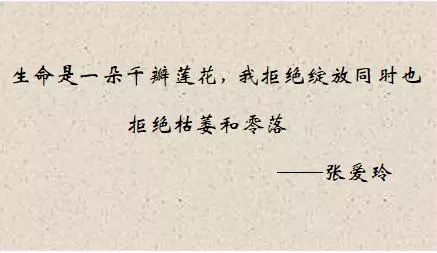 生命是一朵千瓣莲花，我拒绝绽放同时也
拒绝枯萎和零落
——张爱玲